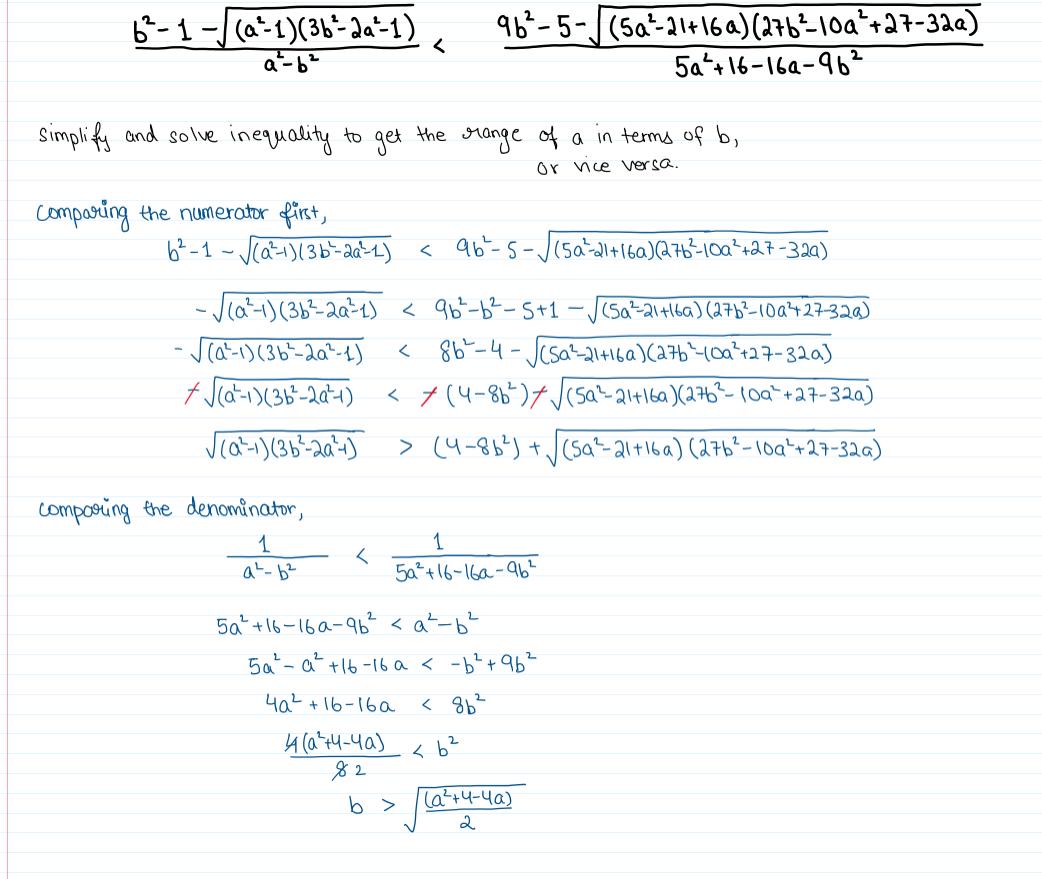 b²-1-√(a²-1)(3b²-2a²-1) / a²-b² < 9b²-5-√(5a²-21+16a)(27b²-10a²+27-32a) / 5a²+16-16a-9b²
simplify and solve inequality to get the range of a in terms of b,
or vice versa.
Comparing the numerator first,
b²-1-√(a²-1)(3b²-2a²-1) < 9b²-5-√(5a²-21+16a)(27b²-10a²+27-32a)
-√(a²-1)(3b²-2a²-1) < 9b²-b²-5+1-√(5a²-21+16a)(27b²-10a²+27-32a)
-√(a²-1)(3b²-2a²-1) < 8b²-4-√(5a²-21+16a)(27b²-10a²+27-32a)
-√(a²-1)(3b²-2a²-1) < -(4-8b²)-√(5a²-21+16a)(27b²-10a²+27-32a)
√(a²-1)(3b²-2a²-1) > (4-8b²)+√(5a²-21+16a)(27b²-10a²+27-32a)
comparing the denominator,
1 / a²-b² < 1 / 5a²+16-16a-9b²
5a²+16-16a-9b² < a²-b²
5a²-a²+16-16a < -b²+9b²
4a²+16-16a < 8b²
4(a²+4-4a) / 8 2 < b²
b > √(a²+4-4a) / 2